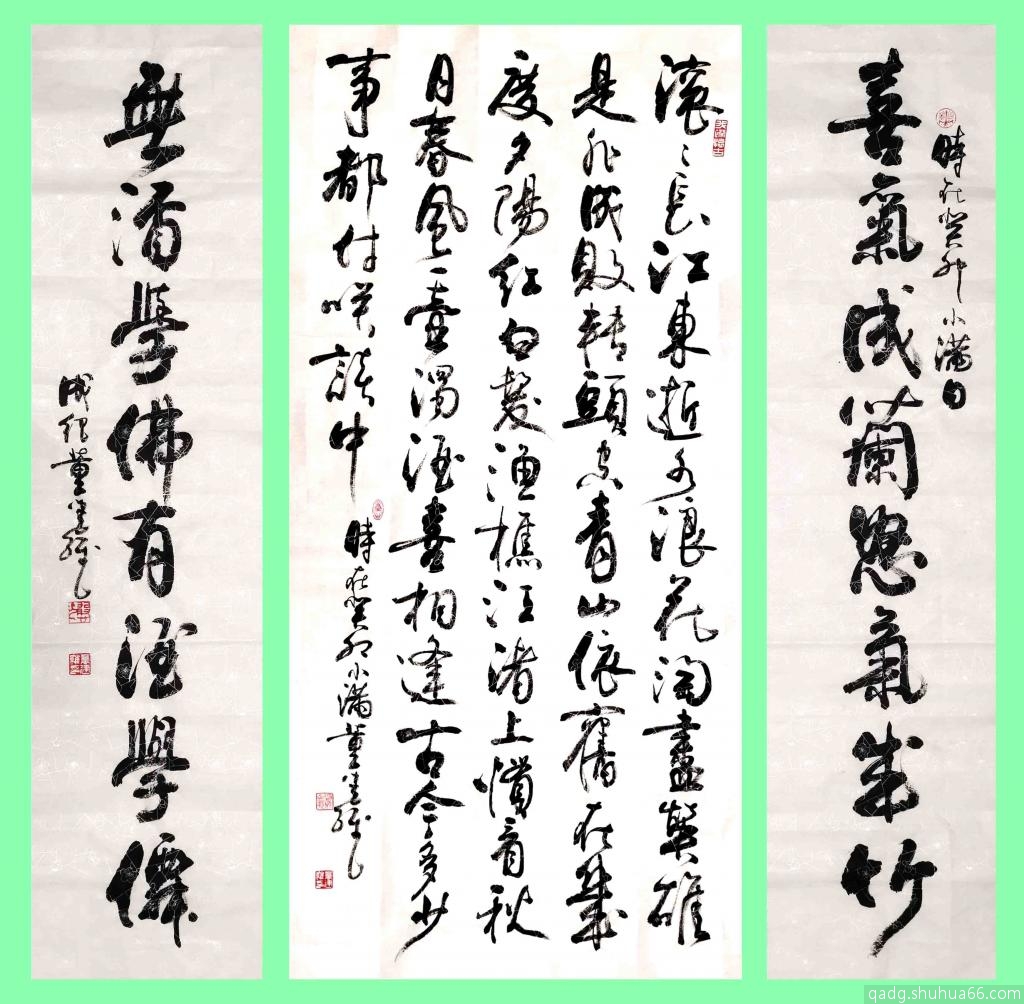 喜氣成蘭怒氣成竹
時在癸卯小滿日
滚〻長江東逝水浪花淘盡英雄
是非成敗轉頭空青山依舊在幾
度夕陽紅白髮漁樵江渚上慣看秋
月春風一壺濁酒喜相逢古今多少
事都付咲談中
時在癸卯小滿董
無酒學佛有酒學僊
董
qadg.shuhua66.com